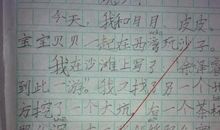 今天,我和月月、皮皮、
宝宝贝贝一起在西湾玩沙子。
我在沙滩上写了“余泽
到此一游”。我又找了另一个地
方挖了一个大坑,一个茶